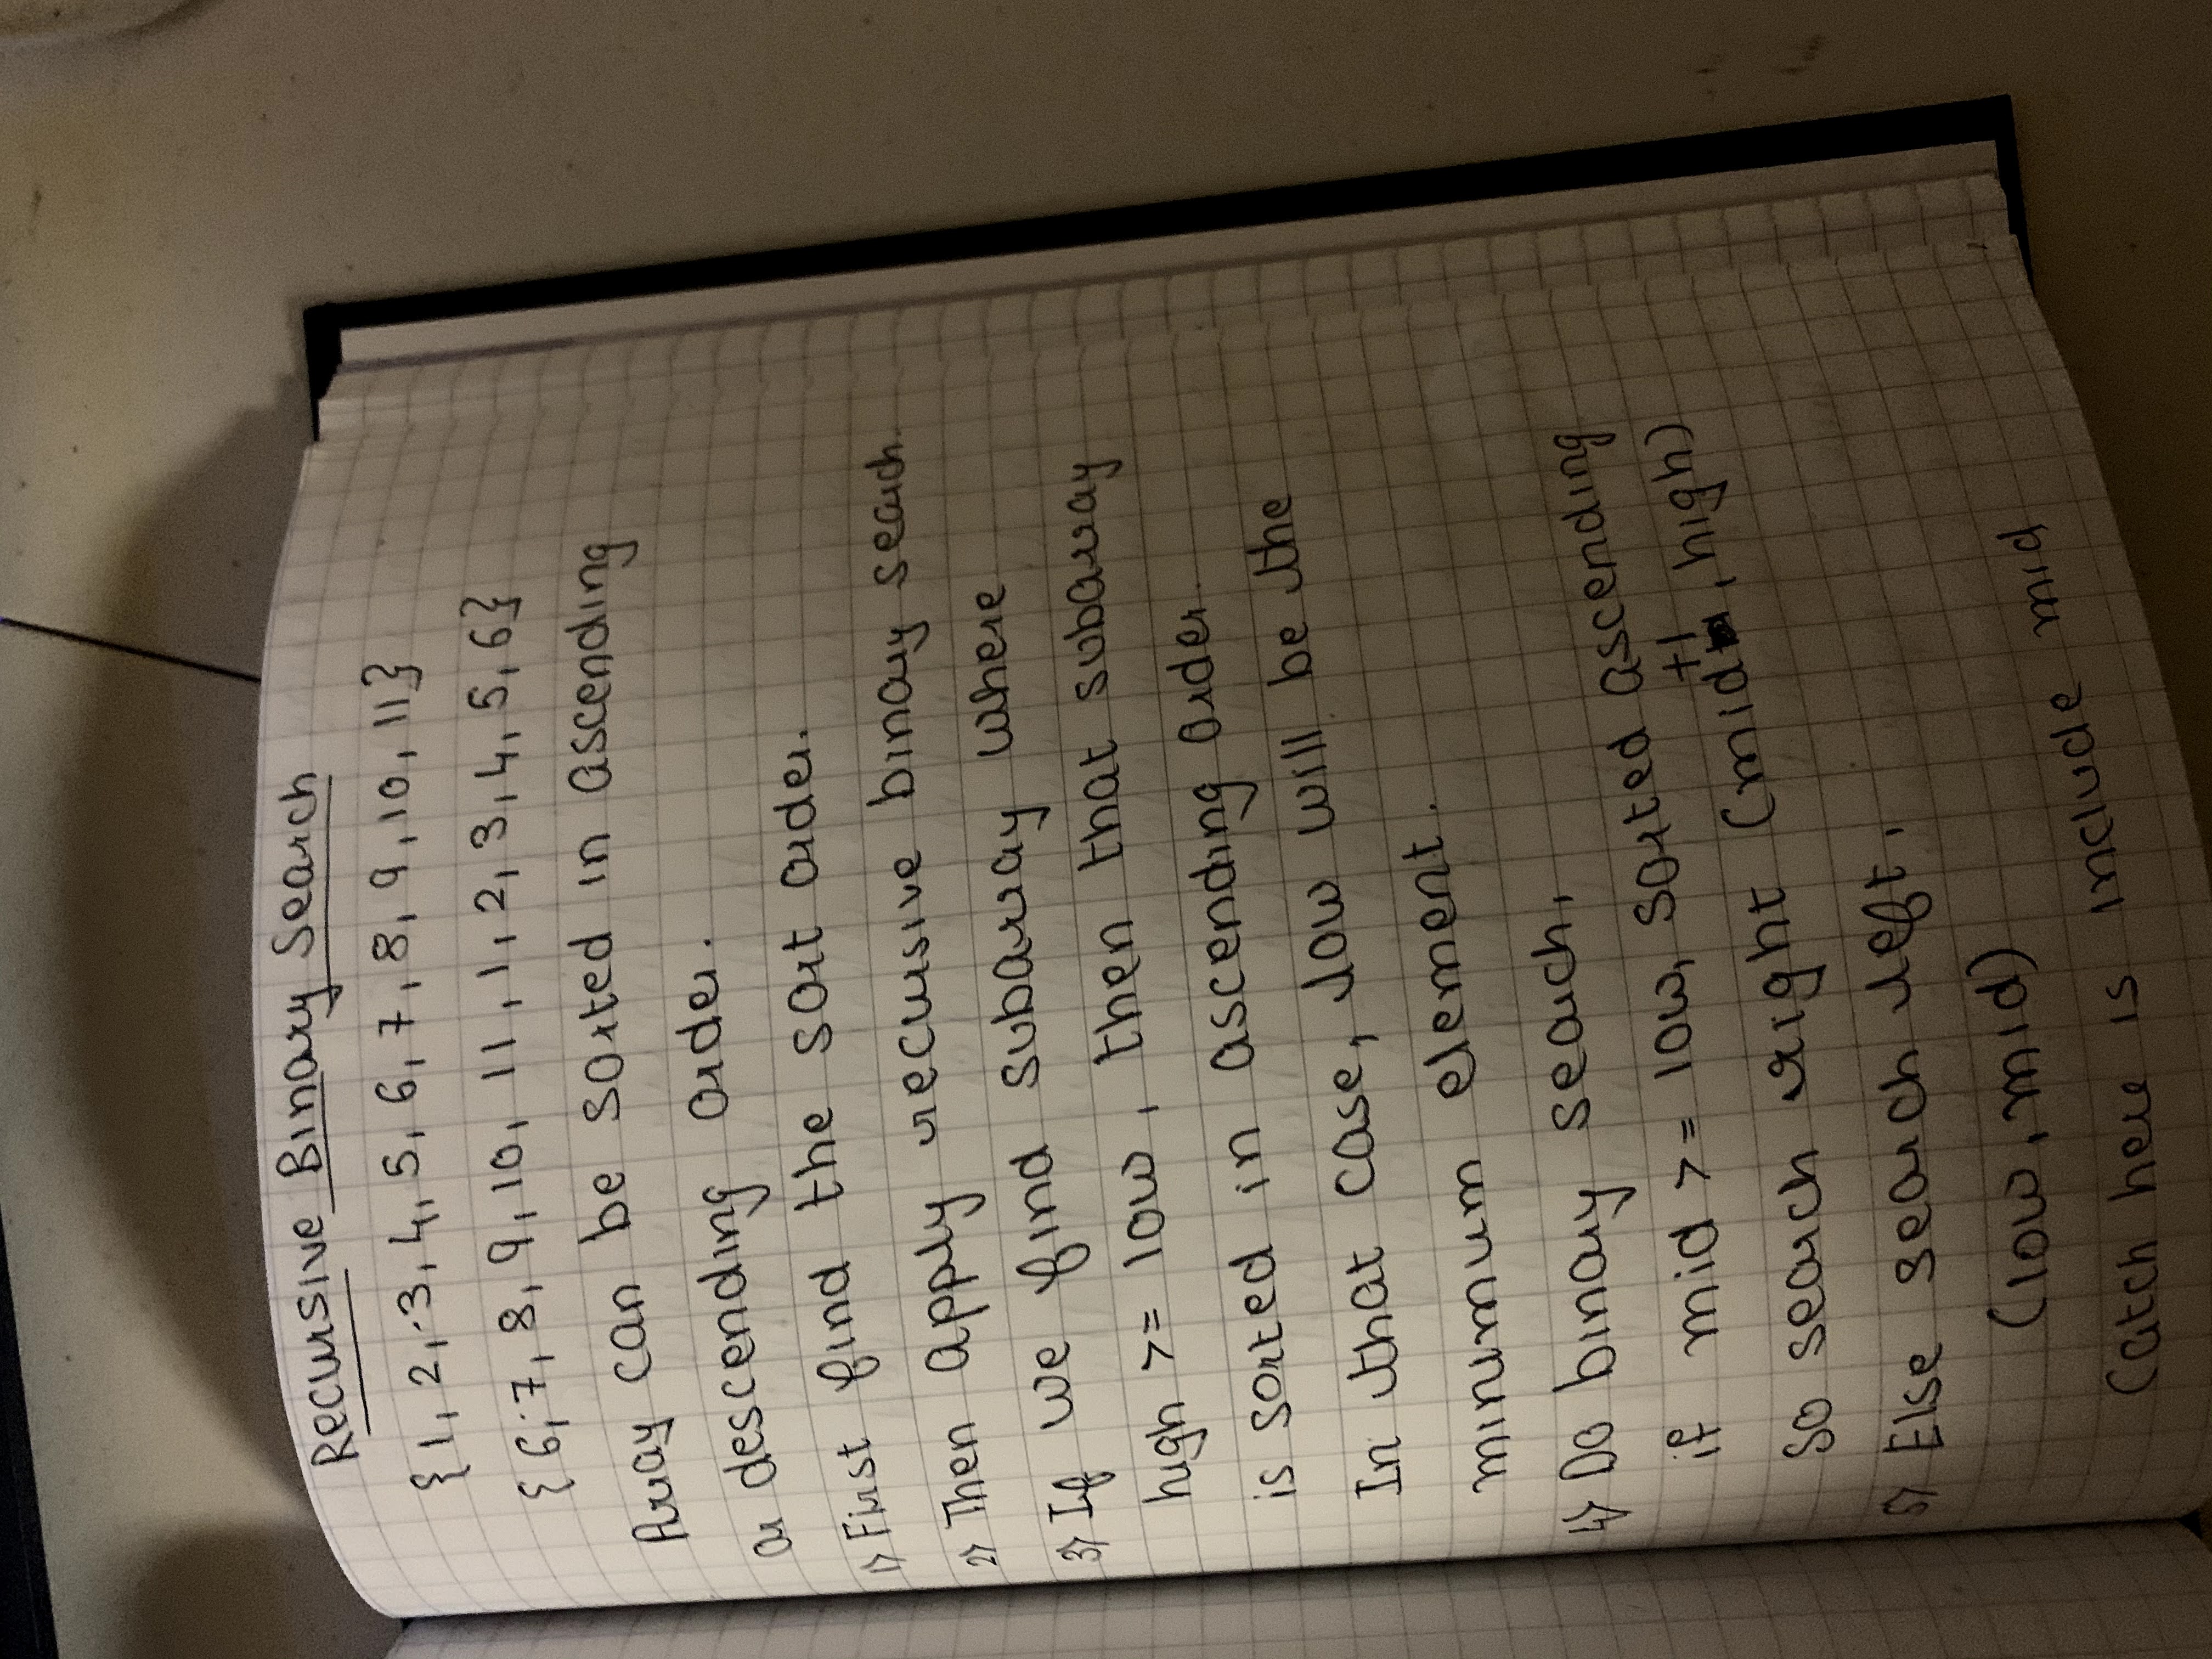 Recursive Binary Search
{1, 2, 3, 4, 5, 6, 7, 8, 9, 10, 11}
{6, 7, 8, 9, 10, 11, 1, 2, 3, 4, 5, 6}
Array can be sorted in ascending
or descending order.
1) First find the sort order.
2) Then apply recursive binary search.
3) If we find subarray where
high >= low, then that subarray
is sorted in ascending order.
In that case, low will be the
minimum element.
4) Do binary search,
if mid >= low, sorted ascending
so search right (mid+1, high)
5) Else search left,
(low, mid)
Catch here is include mid